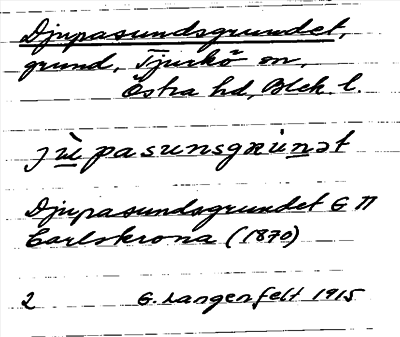 Djupasundsgrundet,
grund, Tjurkö sn,
Östra hd, Blek. l.
Djupasundsgrundet G
Carlskrona (1870)
2 G. Langenfelt 1915